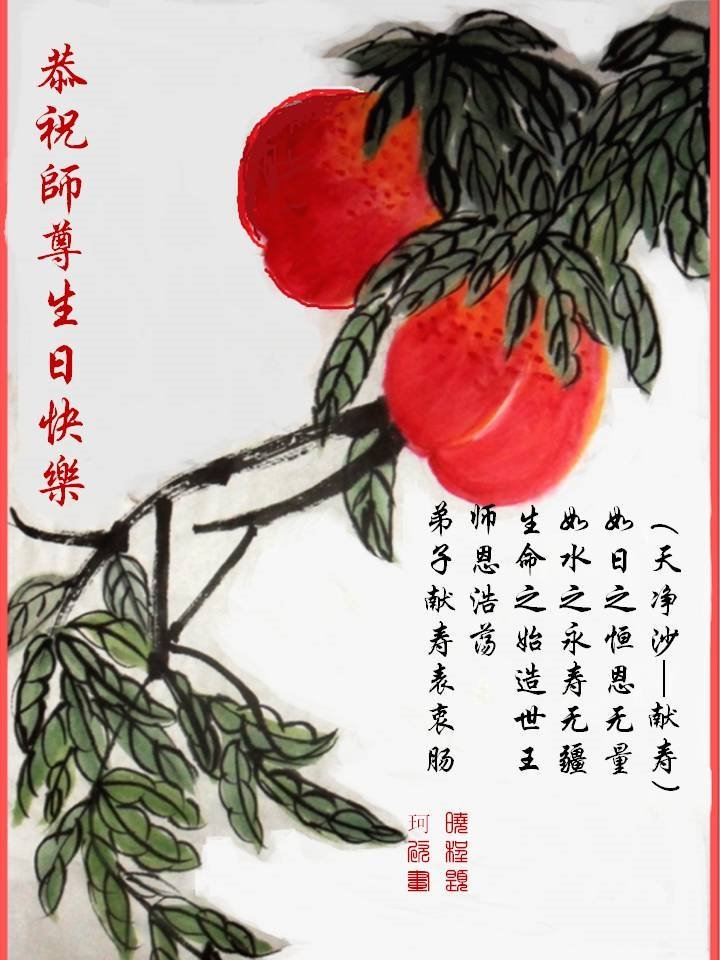 恭祝師尊生日快樂
(天净沙—献寿)
如日之恒恩无量
如水之永寿无疆
生命之始造世王
师恩浩荡
弟子献寿表衷肠
曉程題
珂欣畫